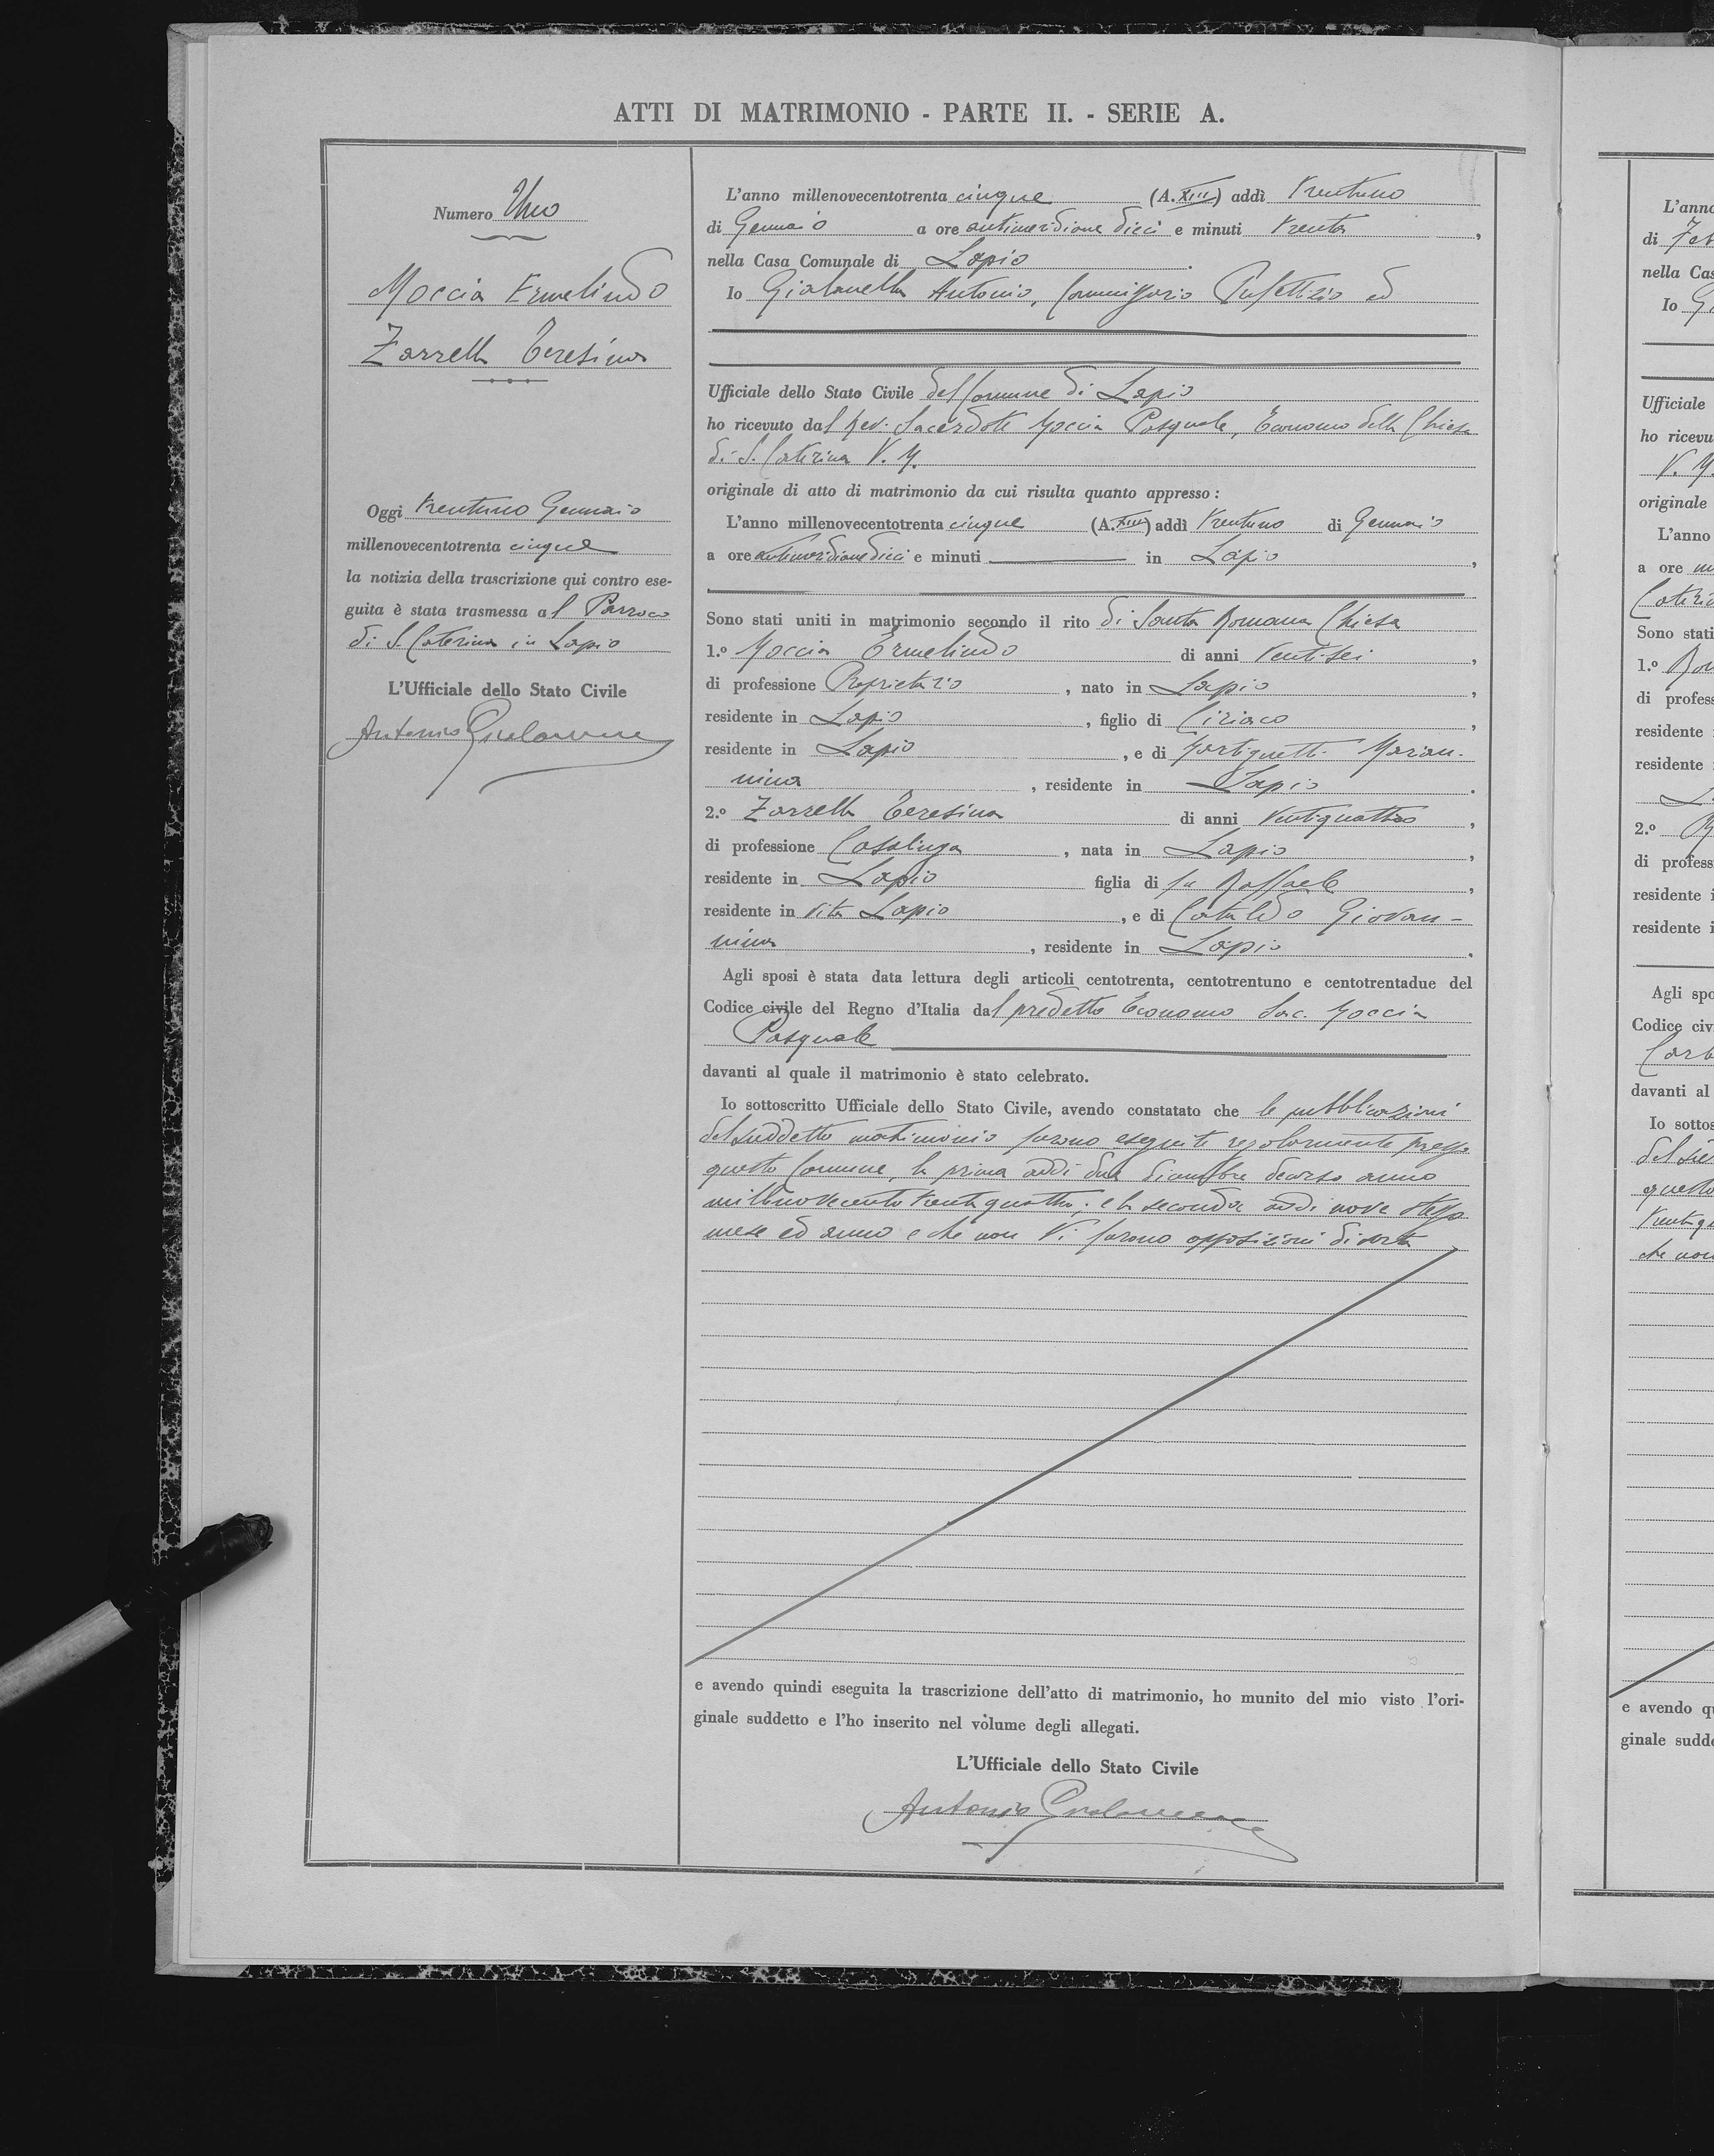 ATTI DI MATRIMONIO - PARTE II. - SERIE A.
Numero Uno
Moccia Ermelindo
Zarrella Teresina
Oggi trentuno Gennaio
millenovecentotrenta cinque
la notizia della trascrizione qui contro ese-
guita è stata trasmessa al Parroco
di S. Caterina in Lapio
L'Ufficiale dello Stato Civile
Antonio
L'anno millenovecentotrenta cinque (A. XIII) addì trentuno
di Gennaio a ore antimeridiane dieci e minuti trenta,
nella Casa Comunale di Lapio.
Io Antonio, Commissario Prefettizio ed
Ufficiale dello Stato Civile del Comune di Lapio
ho ricevuto dal Rev. Sacerdote Moccia Pasquale, Economo della Chiesa
di S. Caterina V. M.
originale di atto di matrimonio da cui risulta quanto appresso:
L'anno millenovecentotrenta cinque (A. XIII) addì trentuno di Gennaio
a ore antimeridiane dieci e minuti in Lapio,
Sono stati uniti in matrimonio secondo il rito di Santa Romana Chiesa
1.º Moccia Ermelindo di anni ventisei,
di professione Proprietario, nato in Lapio,
residente in Lapio, figlio di Ciriaco,
residente in Lapio, e di Martignetti Marian-
nina, residente in Lapio.
2.º Zarrella Teresina di anni ventiquattro,
di professione Casalinga, nata in Lapio,
residente in Lapio figlia di fu Raffaele,
residente in vita Lapio, e di Cataldo Giovan-
nina, residente in Lapio.
Agli sposi è stata data lettura degli articoli centotrenta, centotrentuno e centotrentadue del
Codice civile del Regno d'Italia dal predetto Economo Sac. Moccia
Pasquale
davanti al quale il matrimonio è stato celebrato.
Io sottoscritto Ufficiale dello Stato Civile, avendo constatato che le pubblicazioni
del suddetto matrimonio furono eseguite regolarmente presso
questo Comune, la prima addì due dicembre decorso anno
millenovecentotrentaquattro; e la seconda addì nove stesso
mese ed anno e che non vi furono opposizioni di sorta
e avendo quindi eseguita la trascrizione dell'atto di matrimonio, ho munito del mio visto l'ori-
ginale suddetto e l'ho inserito nel volume degli allegati.
L'Ufficiale dello Stato Civile
Antonio
L'anno
di
nella Cas
Io
Ufficiale
ho ricevu
V. M.
originale
L'anno
a ore
Sono stati
1.º
di profess
residente
residente
2.º
di profess
residente i
residente i
Agli spo
Codice civ
davanti al
Io sottos
questo
che non
e avendo qu
ginale sudde